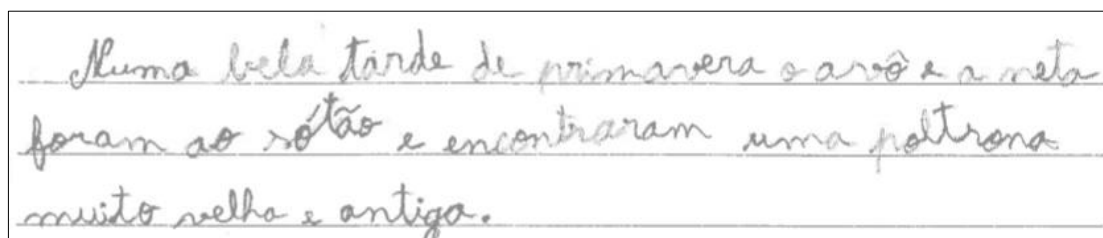 Numa bela tarde de primavera o avô e a neta
foram ao sótão e encontraram uma poltrona
muito velha e antiga.